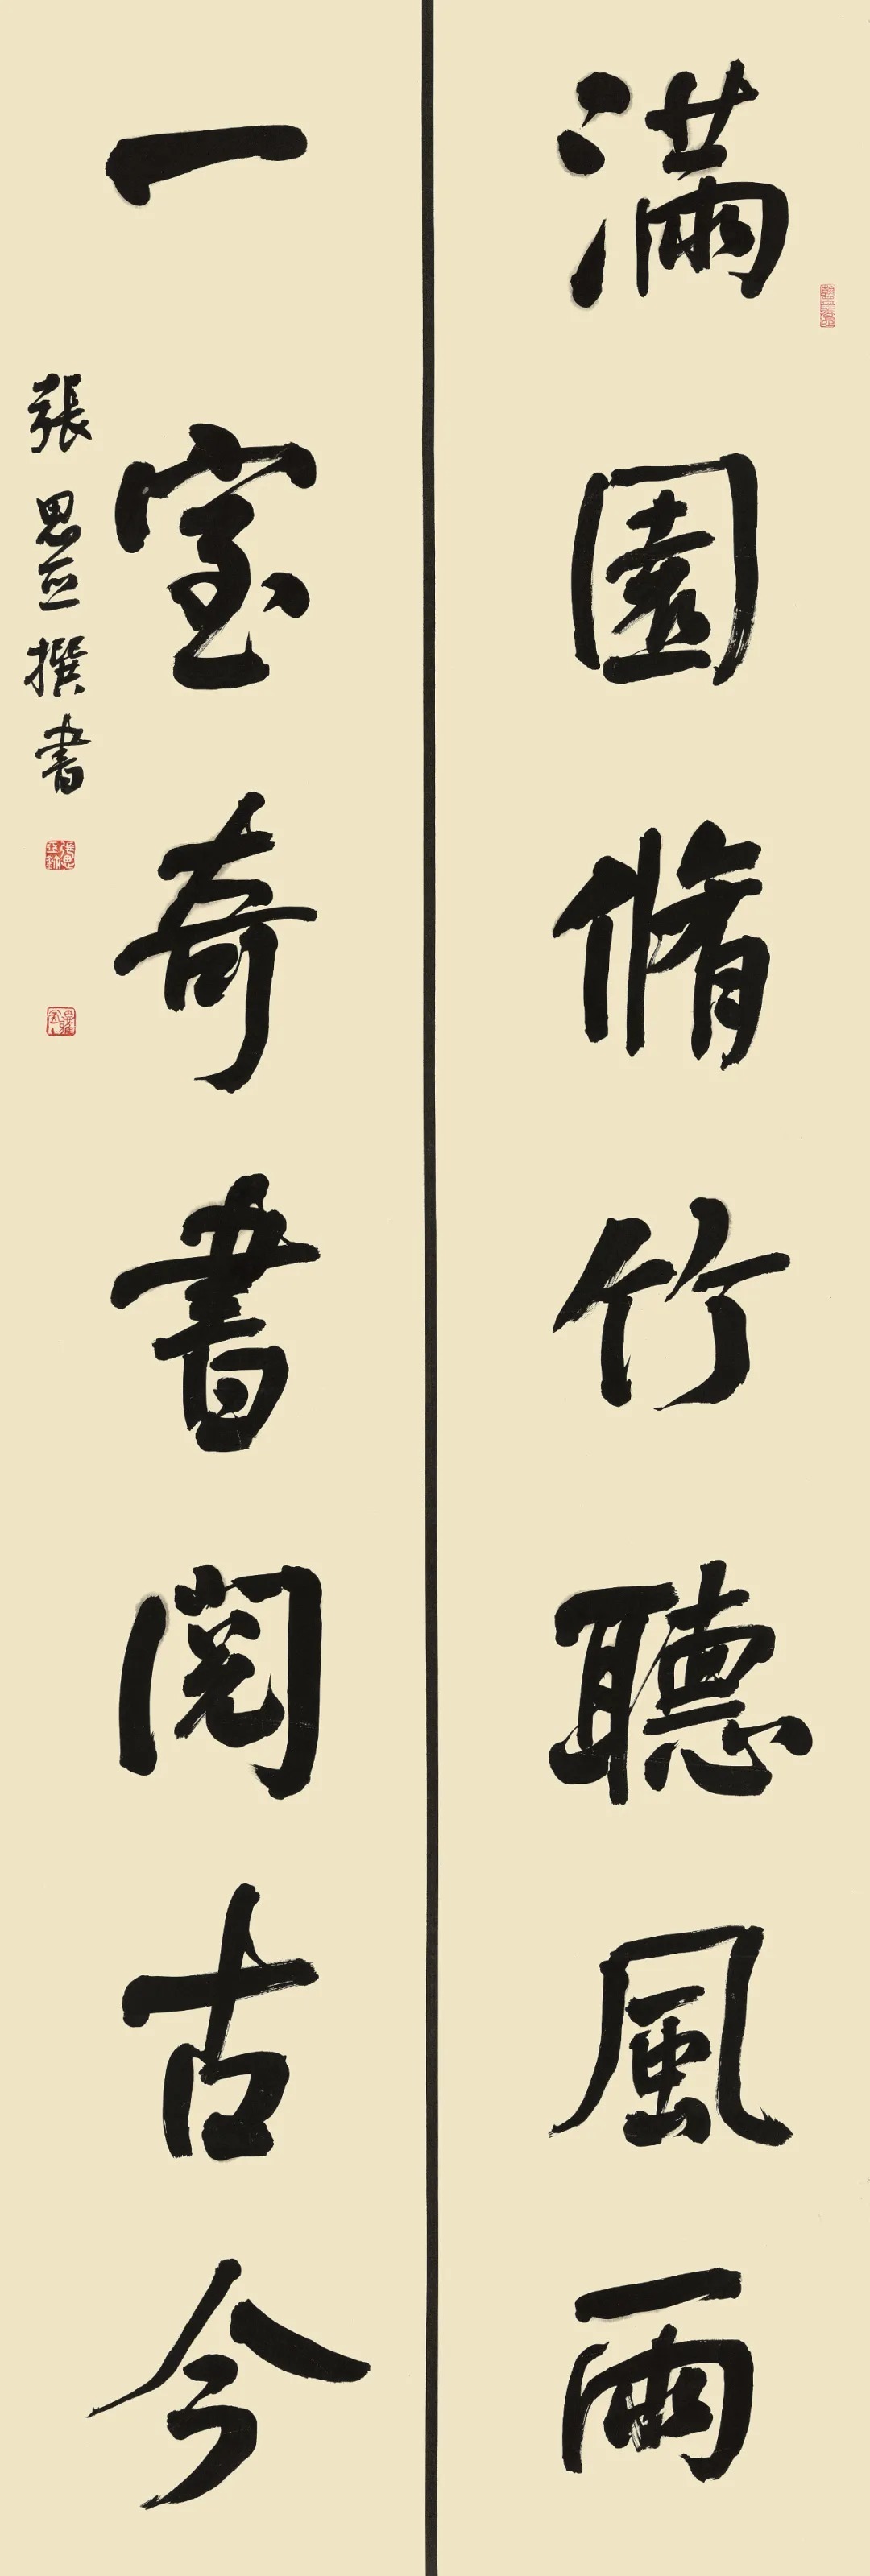 滿園脩竹聽風雨
一室奇書閱古今
張思亞撰書